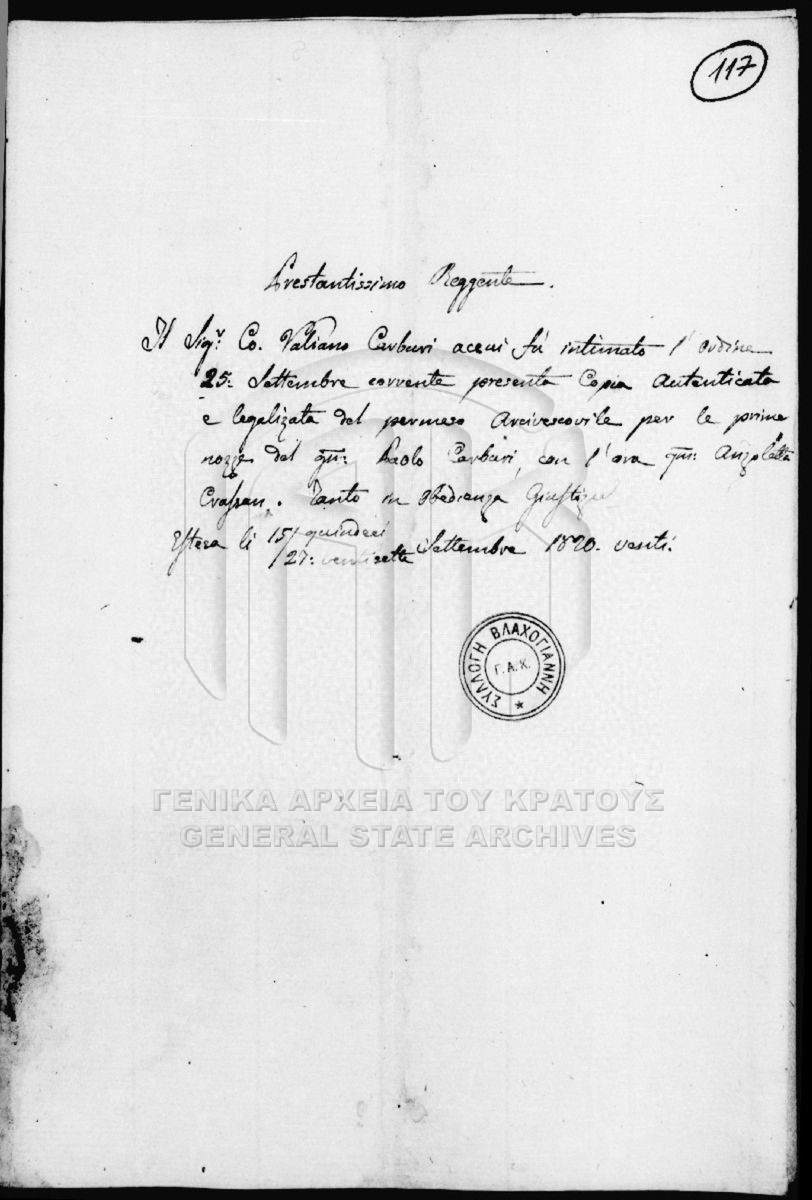 117
Prestantissimo Reggente.
Il Sigr. Co. Valiano Carburi a cui fù intimato l'ordine
25: Settembre corrente presenta Copia Autenticata
e legalizata del permesso Arcivescovile per le prime
nozze del qm: Paolo Carburi, con l'ora qm: Anzoletta
Crassan. Tanto in Obedienza Giustizia
Estesa li 15/ quindeci
/27: ventisette Settembre 1820. venti.
ΣΥΛΛΟΓΗ ΒΛΑΧΟΓΙΑΝΝΗ
Γ.Α.Κ.
ΓΕΝΙΚΑ ΑΡΧΕΙΑ ΤΟΥ ΚΡΑΤΟΥΣ
GENERAL STATE ARCHIVES